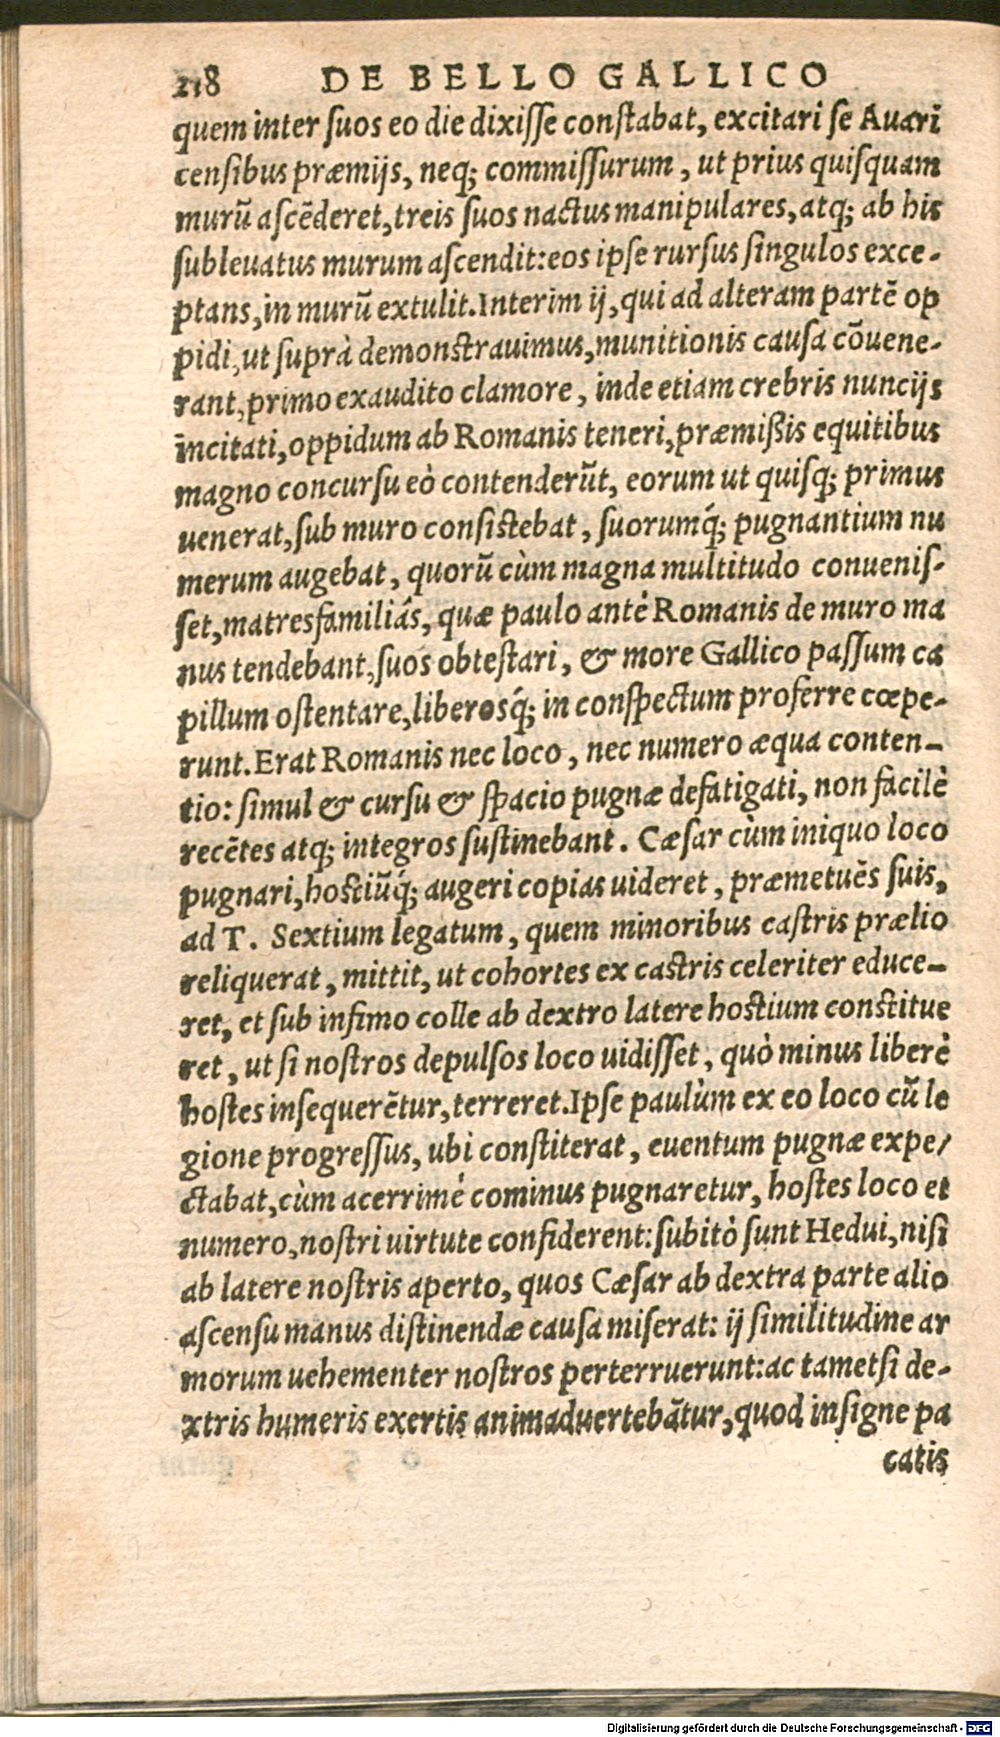 218 DE BELLO GALLICO
quem inter ſuos eo die dixiſſe conſtabat, excitari ſe Auari
cenſibus præmijs, neq; commiſſurum, ut prius quiſquam
murū aſcēderet, treis ſuos nactus manipulares, atq; ab his
ſubleuatus murum aſcendit: eos ipſe rurſus ſingulos exce-
ptans, in murū extulit. Interim ij, qui ad alteram partē op
pidi, ut ſuprà demonſtrauimus, munitionis cauſa cōuene-
rant, primo exaudito clamore, inde etiam crebris nuncijs
incitati, oppidum ab Romanis teneri, præmißis equitibus
magno concurſu eò contenderūt, eorum ut quiſq; primus
uenerat, ſub muro conſiſtebat, ſuorumq́; pugnantium nu
merum augebat, quorū cùm magna multitudo conueniſ-
ſet, matresfamiliâs, quæ paulo antè Romanis de muro ma
nus tendebant, ſuos obteſtari, & more Gallico paſſum ca
pillum oſtentare, liberosq́; in conſpectum proferre cœpe-
runt. Erat Romanis nec loco, nec numero æqua conten-
tio: ſimul & curſu & ſpacio pugnæ defatigati, non facilè
recētes atq; integros ſuſtinebant. Cæſar cùm iniquo loco
pugnari, hoſtiūq́; augeri copias uideret, præmetuēs ſuis,
ad T. Sextium legatum, quem minoribus caſtris prælio
reliquerat, mittit, ut cohortes ex caſtris celeriter educe-
ret, et ſub infimo colle ab dextro latere hoſtium conſtitue
ret, ut ſi noſtros depulſos loco uidiſſet, quò minus liberè
hoſtes inſequerētur, terreret. Ipſe paulùm ex eo loco cū le
gione progreſſus, ubi conſtiterat, euentum pugnæ expe/
ctabat, cùm acerrimè cominus pugnaretur, hoſtes loco et
numero, noſtri uirtute confiderent: ſubitò ſunt Hedui, niſi
ab latere noſtris aperto, quos Cæſar ab dextra parte alio
aſcenſu manus diſtinendæ cauſa miſerat: ij ſimilitudine ar
morum uehementer noſtros perterruerunt: ac tametſi de-
xtris humeris exertis animaduertebātur, quod inſigne pa
catis
Digitalisierung gefördert durch die Deutsche Forschungsgemeinschaft - DFG